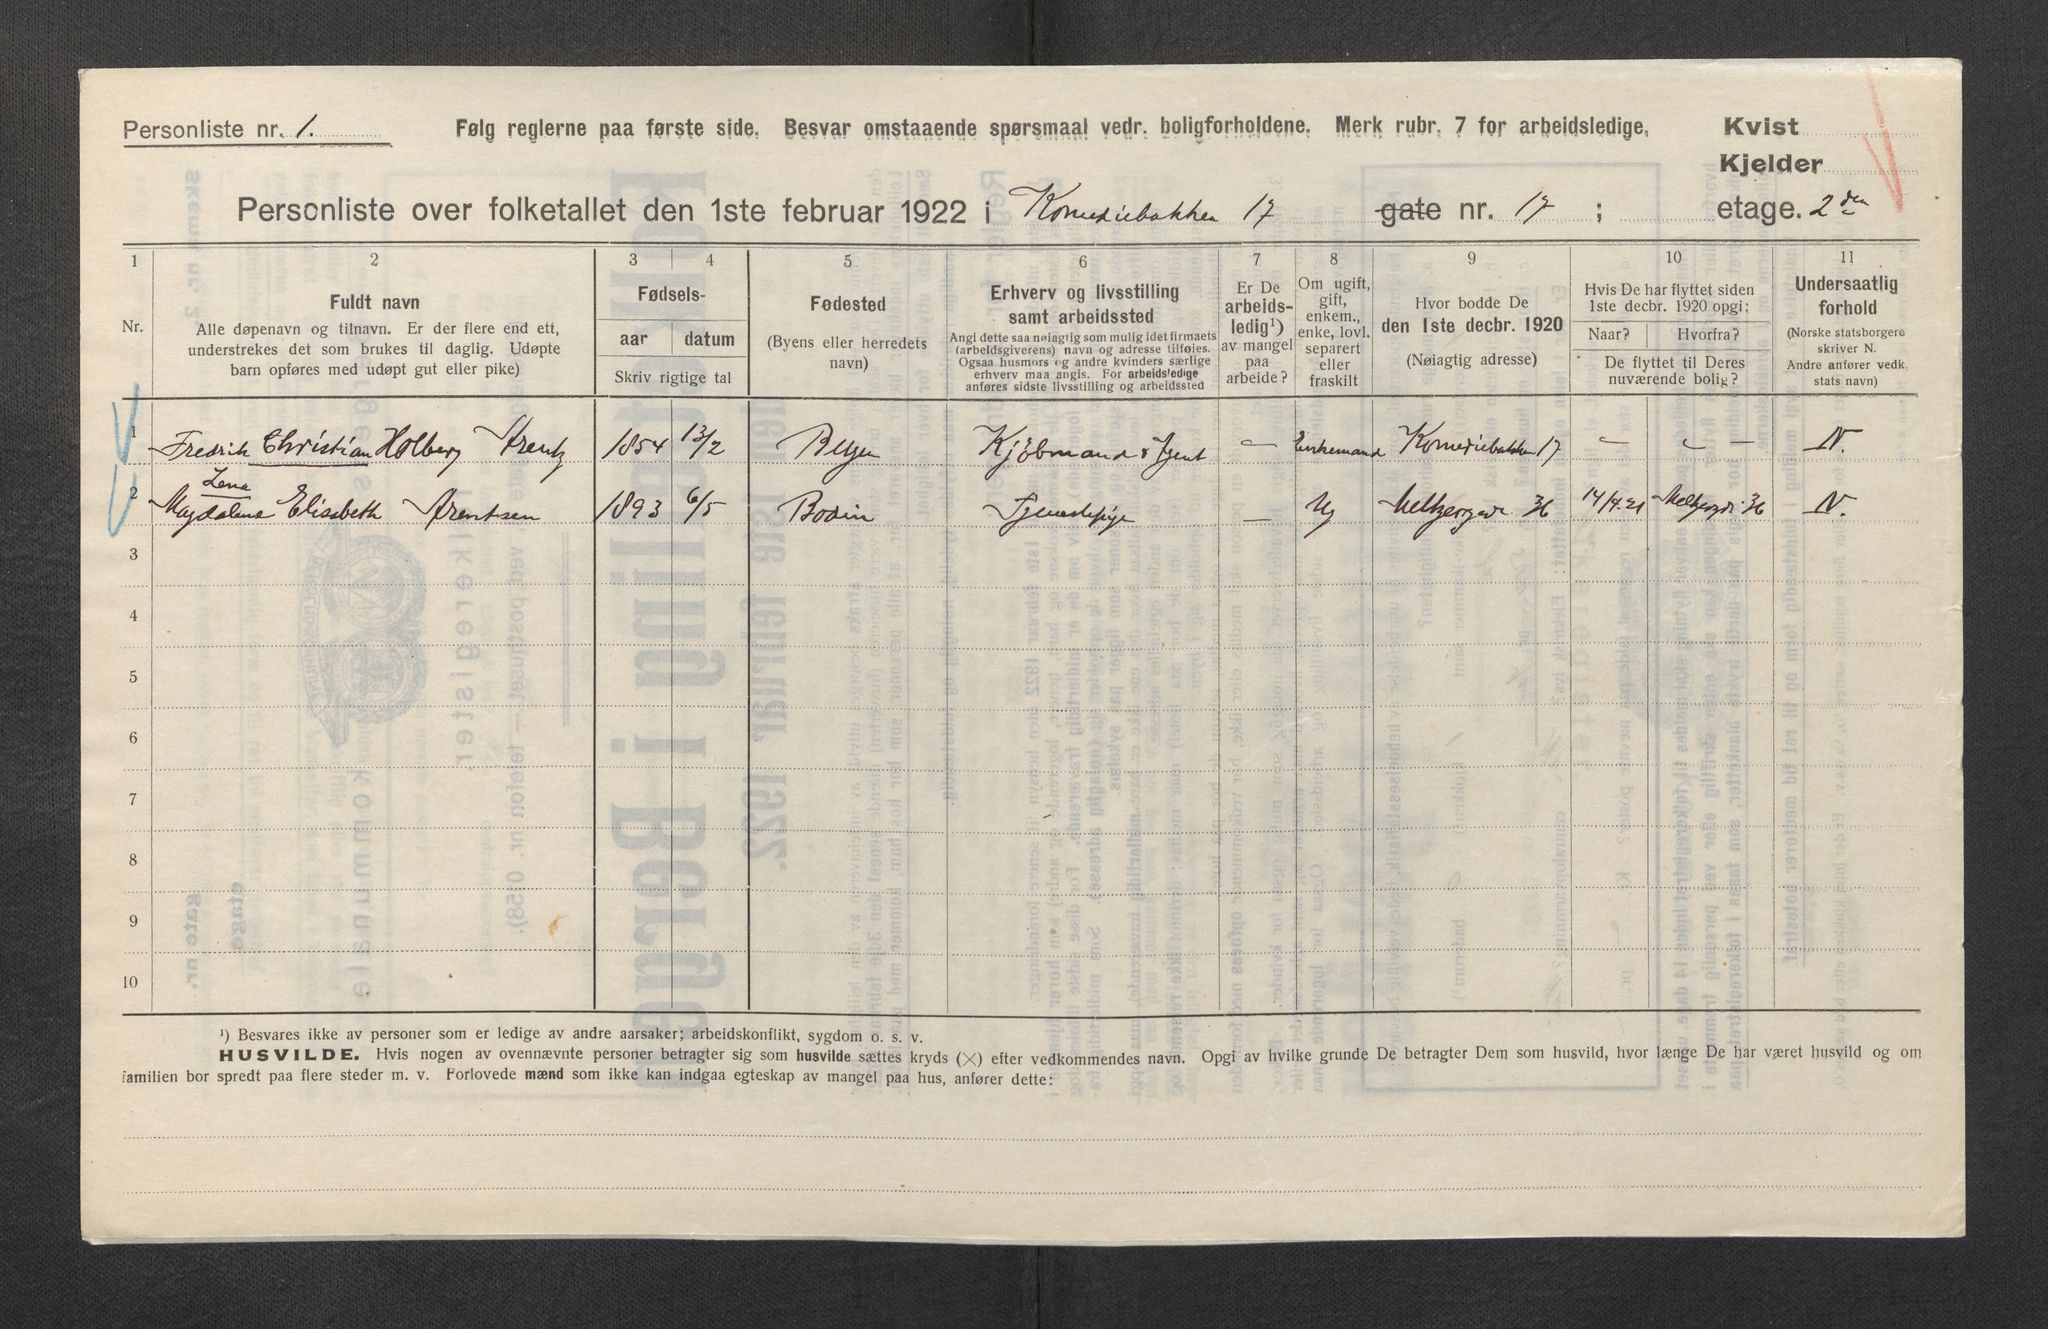 Personliste nr. 1. Følg reglerne paa første side. Besvar omstaaende spørsmaal vedr. boligforholdene. Merk rubr. 7 for arbeidsledige. Kvist
Kjelder
Personliste over folketallet den 1ste februar 1922 i Komediebakken 17 gate nr. 17 ; etage. 2den
1 2 3 4 5 6 7 8 9 10 11
Nr.
Fuldt navn
Alle døpenavn og tilnavn. Er der flere end ett,
understrekes det som brukes til daglig. Udøpte
barn opføres med udøpt gut eller pike)
Fødsels-
aar datum
Skriv rigtige tal
Fødested
(Byens eller herredets
navn)
Erhverv og livsstilling
samt arbeidssted
Angi dette saa nøiagtig som mulig idet firmaets
(arbeidsgiverens) navn og adresse tilføies.
Ogsaa husmors og andre kvinders særlige
erhverv maa angis. For arbeidsledige
anføres sidste livsstilling og arbeidssted
Er De
arbeids-
ledig¹)
av mangel
paa
arbeide?
Om ugift,
gift,
enkem.,
enke, lovl.
separert
eller
fraskilt
Hvor bodde De
den 1ste decbr. 1920
(Nøiagtig adresse)
Hvis De har flyttet siden
1ste decbr. 1920 opgi:
Naar? Hvorfra?
De flyttet til Deres
nuværende bolig?
Undersaatlig
forhold
(Norske statsborgere
skriver N.
Andre anfører vedk.
stats navn)
1 Fredrik Christian Holberg Arentz 1854 13/2 Bergen Kjøbmand & Agent — Enkemand Komediebakken 17 — — — N.
Lena
2 Magdalene Elisabeth Arentsen 1893 6/5 Bodin Tjenestepige — Ug 36 14/4.21 36 N.
3
4
5
6
7
8
9
10
¹) Besvares ikke av personer som er ledige av andre aarsaker; arbeidskonflikt, sygdom o. s. v.
HUSVILDE. Hvis nogen av ovennævnte personer betragter sig som husvilde sættes kryds (×) efter vedkommendes navn. Opgi av hvilke grunde De betragter Dem som husvild, hvor længe De har været husvild og om
familien bor spredt paa flere steder m. v. Forlovede mænd som ikke kan indgaa egteskap av mangel paa hus, anfører dette: